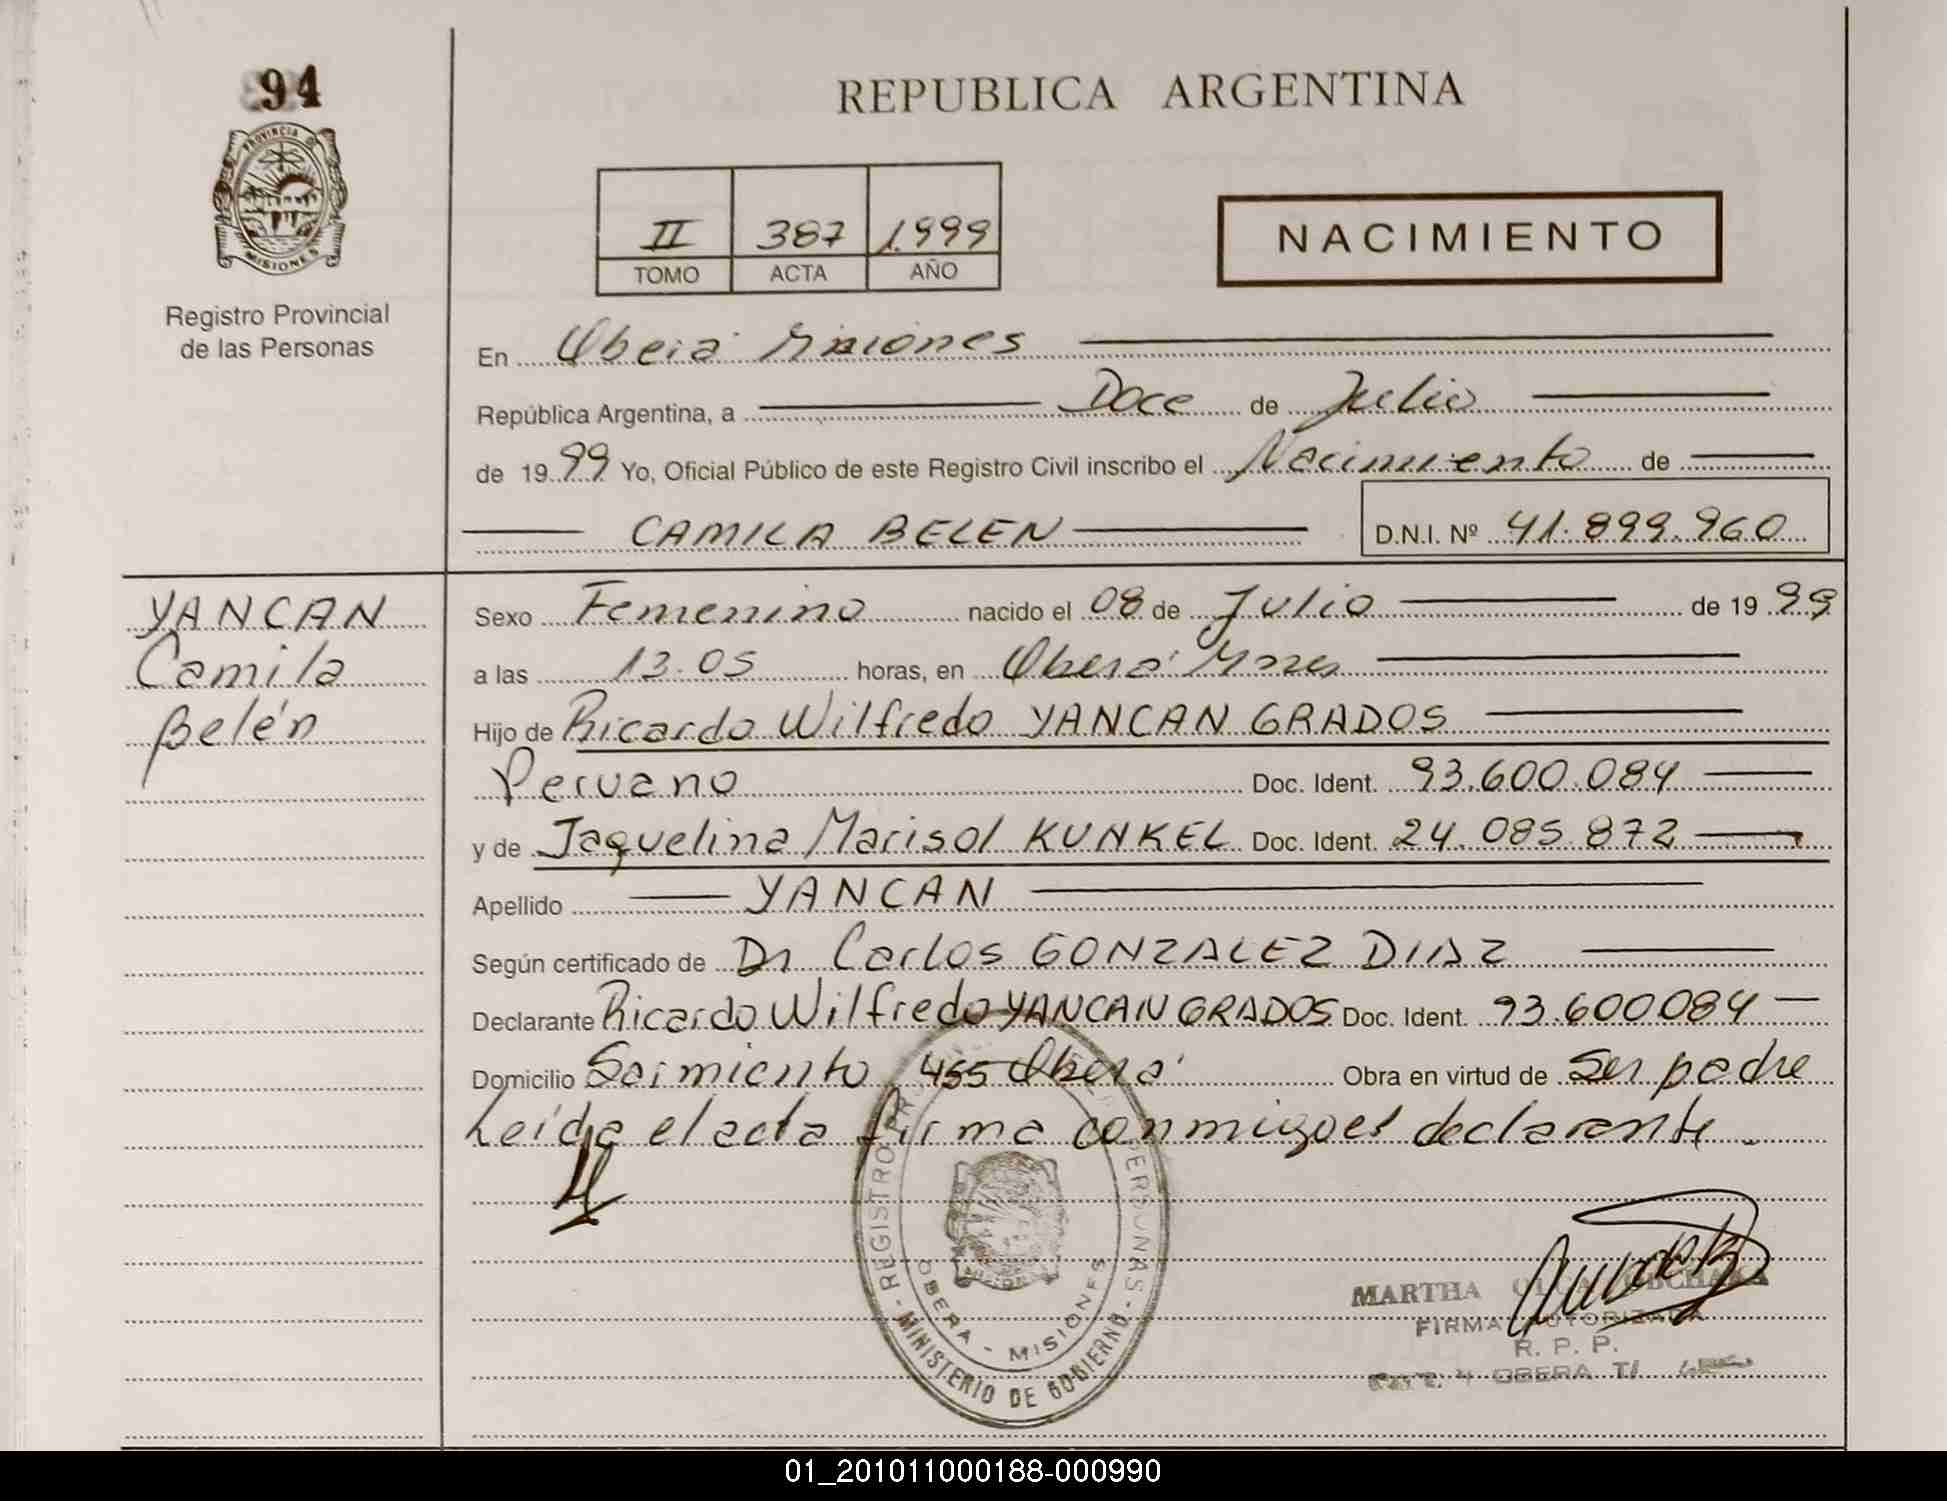 94
PROVINCIA
MISIONES
Registro Provincial
de las Personas
REPUBLICA ARGENTINA
II 387 1.999
TOMO ACTA AÑO
NACIMIENTO
En Oberá Misiones
República Argentina, a Doce de Julio
de 19 99 Yo, Oficial Público de este Registro Civil inscribo el Nacimiento de
CAMILA BELEN D.N.I. Nº 41.899.960
YANCAN
Camila
Belén
Sexo Femenino nacido el 08 de Julio de 19 99
a las 13.05 horas, en Oberá Mnes
Hijo de Ricardo Wilfredo YANCAN GRADOS
Peruano Doc. Ident. 93.600.084
y de Jaquelina Marisol KUNKEL Doc. Ident. 24.085.872
Apellido YANCAN
Según certificado de Dr Carlos GONZALEZ DIAZ
Declarante Ricardo Wilfredo YANCAN GRADOS Doc. Ident. 93.600084
Domicilio Sarmiento 455 Oberá Obra en virtud de Ser padre
Leída el acta firma conmigo el declarante.
REGISTRO PERSONAS
OBERA - MISIONES
MINISTERIO DE GOBIERNO
MARTHA
FIRMA AUTORIZADA
R. P. P.
OBERA
01_201011000188-000990